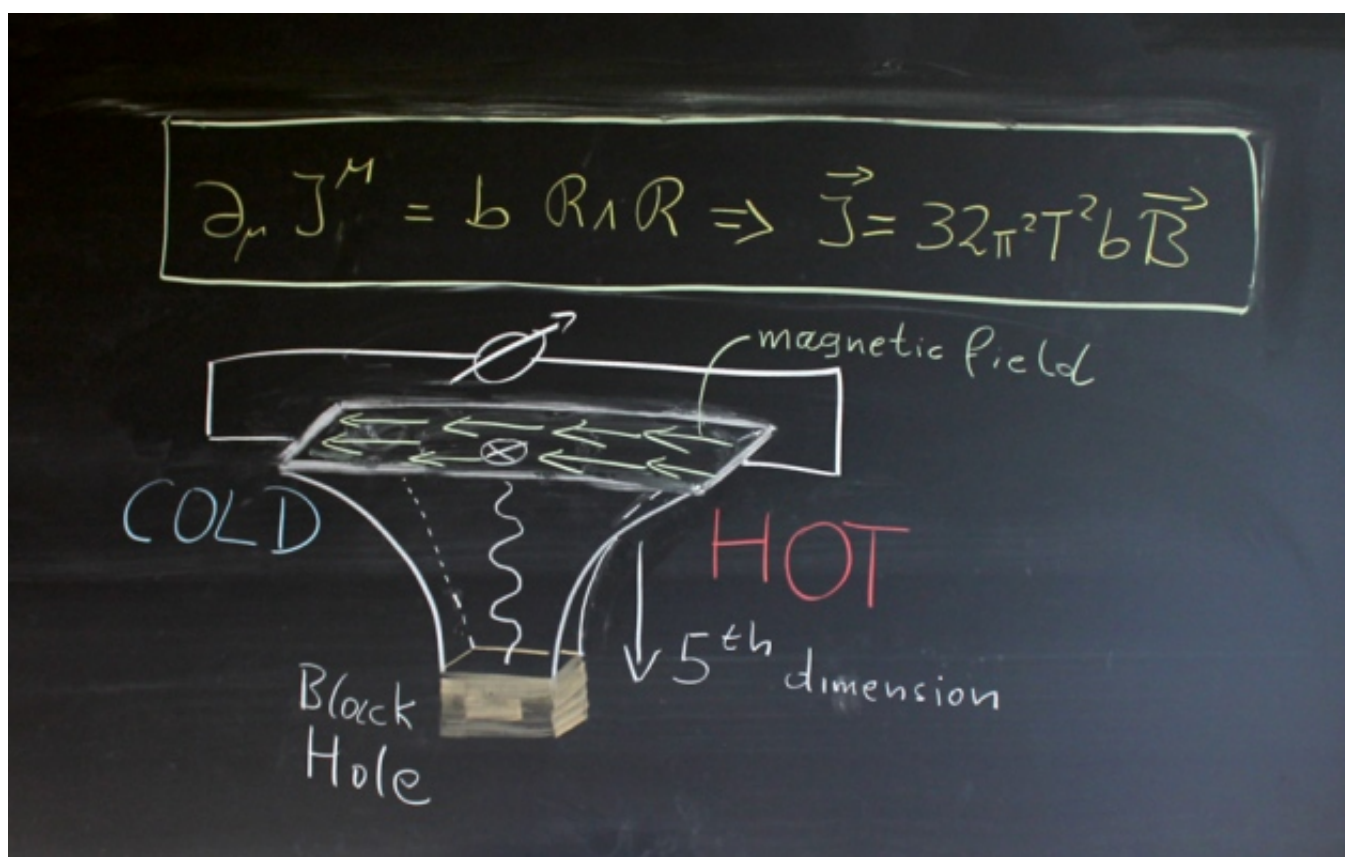 ∂_μ J^μ = b R∧R ⇒ \vec{J} = 32π²T²b\vec{B}
magnetic field
COLD
HOT
5th dimension
Black
Hole